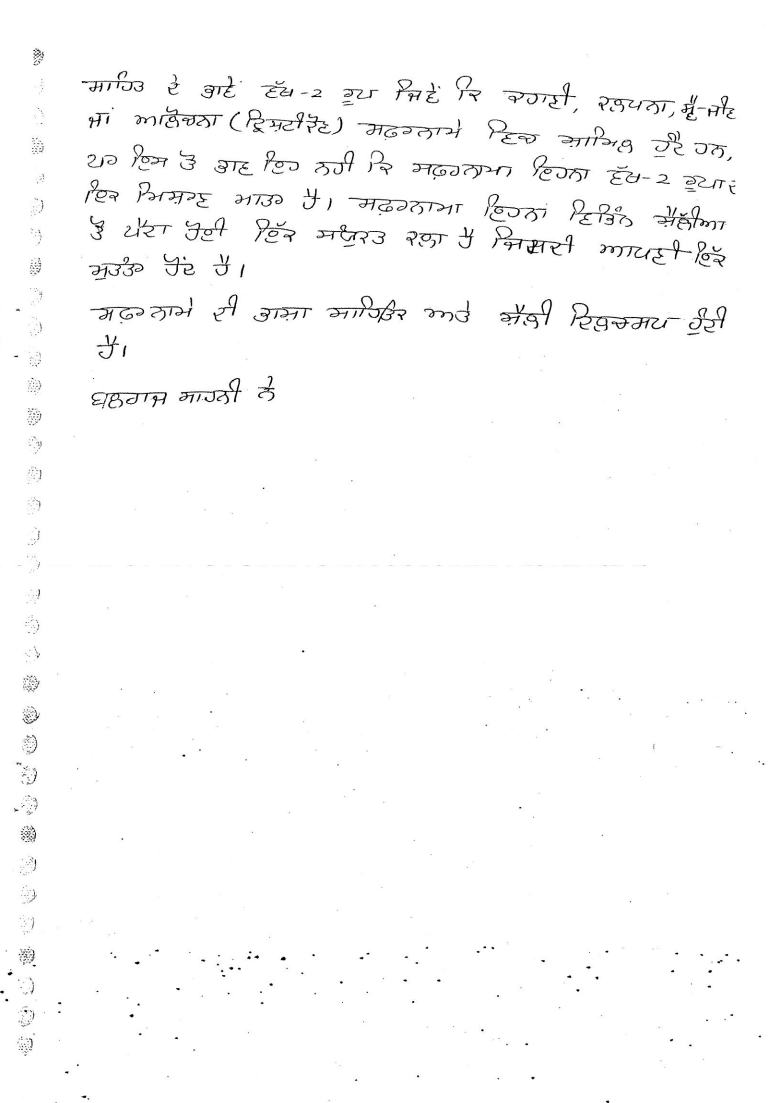 ਸਾਹਿਤ ਦੇ ਭਾਵੇਂ ਵੱਖ-2 ਰੂਪ ਜਿਵੇਂ ਕਿ ਕਹਾਣੀ, ਕਲਪਨਾ, ਸ੍ਵੈ-ਜੀਵ
ਜਾਂ ਆਲੋਚਨਾ (ਦ੍ਰਿਸ਼ਟੀਕੋਣ) ਸਫ਼ਰਨਾਮੇ ਵਿਚ ਸ਼ਾਮਿਲ ਹੁੰਦੇ ਹਨ,
ਪਰ ਇਸ ਤੋਂ ਭਾਵ ਇਹ ਨਹੀ ਕਿ ਸਫ਼ਰਨਾਮਾ ਇਹਨਾ ਵੱਖ-2 ਰੂਪਾਂ ਦ
ਇਕ ਮਿਸ਼ਰਣ ਮਾਤਰ ਹੈ। ਸਫ਼ਰਨਾਮਾ ਇਹਨਾਂ ਵਿਭਿੰਨ ਸ਼ੈਲੀਆ
ਤੋਂ ਪੈਦਾ ਹੋਈ ਇੱਕ ਸੰਯੁਕਤ ਕਲਾ ਹੈ ਜਿਸਦੀ ਆਪਣੀ ਇੱਕ
ਸੁਤੰਤਰ ਹੋਂਦ ਹੈ।
ਸਫ਼ਰਨਾਮੇ ਦੀ ਭਾਸ਼ਾ ਸਾਹਿਤਿਕ ਅਤੇ ਸ਼ੈਲੀ ਦਿਲਚਸਪ ਹੁੰਦੀ
ਹੈ।
ਬਲਰਾਜ ਸਾਹਨੀ ਨੇ